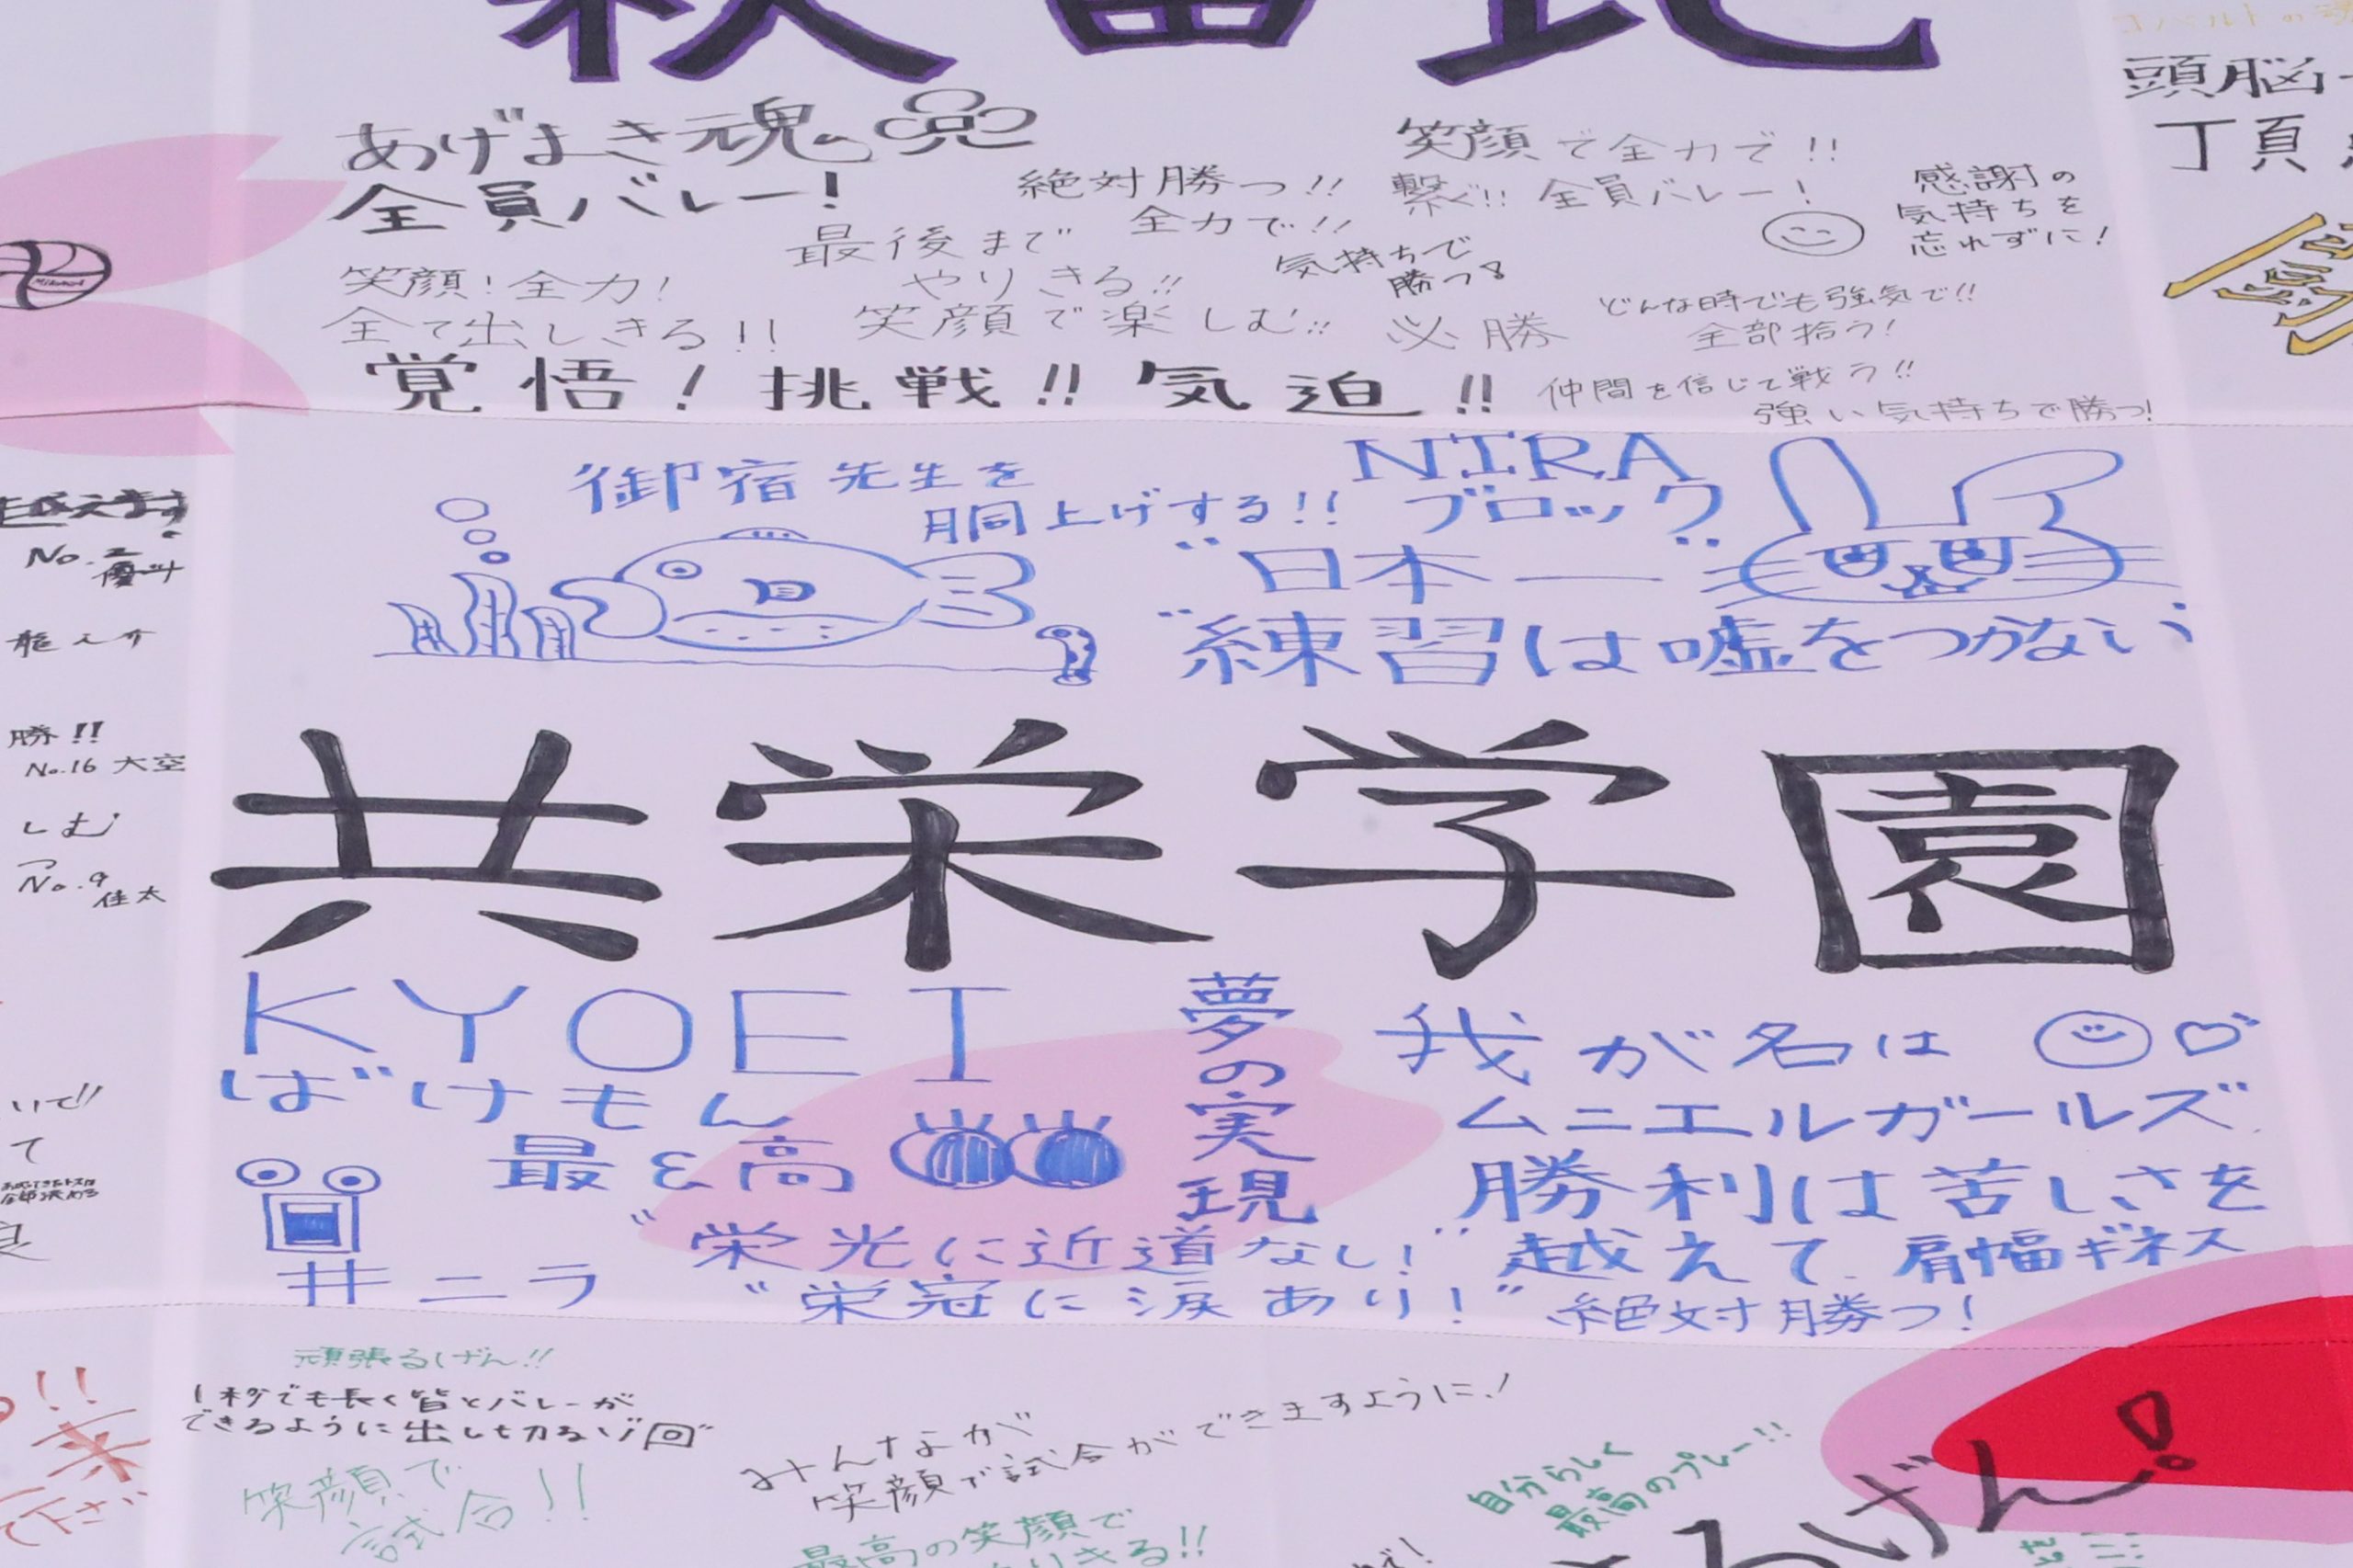 あげまき魂
全員バレー!
絶対勝つ!!
全力で!!
笑顔で全力で!!
繋ぐ!! 全員バレー!
感謝の
気持ちを
忘れずに!
最後まで
やりきる!!
気持ちで
勝つ
笑顔!全力!
全て出しきる!!
笑顔で楽しむ!!
必勝
どんな時でも強気で!!
全部拾う!
覚悟!挑戦!!気迫!!
仲間を信じて戦う!!
強い気持ちで勝つ!
頭脳
丁頁
Mikasa
No.2
優斗
勝!!
No.16 大空
しむ
No.9
佳太
いて!!
て
御宿先生を
胴上げする!!
NIRA
ブロック
"日本一"
"練習は嘘をつかない"
共栄学園
KYOEI
ばけもん
最ε高
井ニラ
夢の実現
"栄光に近道なし!"
"栄冠に涙あり!"
我が名は
ムニエルガールズ
勝利は苦しさを
越えて.肩幅ギネス
絶対勝つ!
頑張るげん!!
1秒でも長く皆とバレーが
できるように出し切るゾ回
笑顔で
試合!!
みんなが
笑顔で試合ができますように!
最高の笑顔で
りきる!!
自分らしく
最高のプレー!!
るげん!